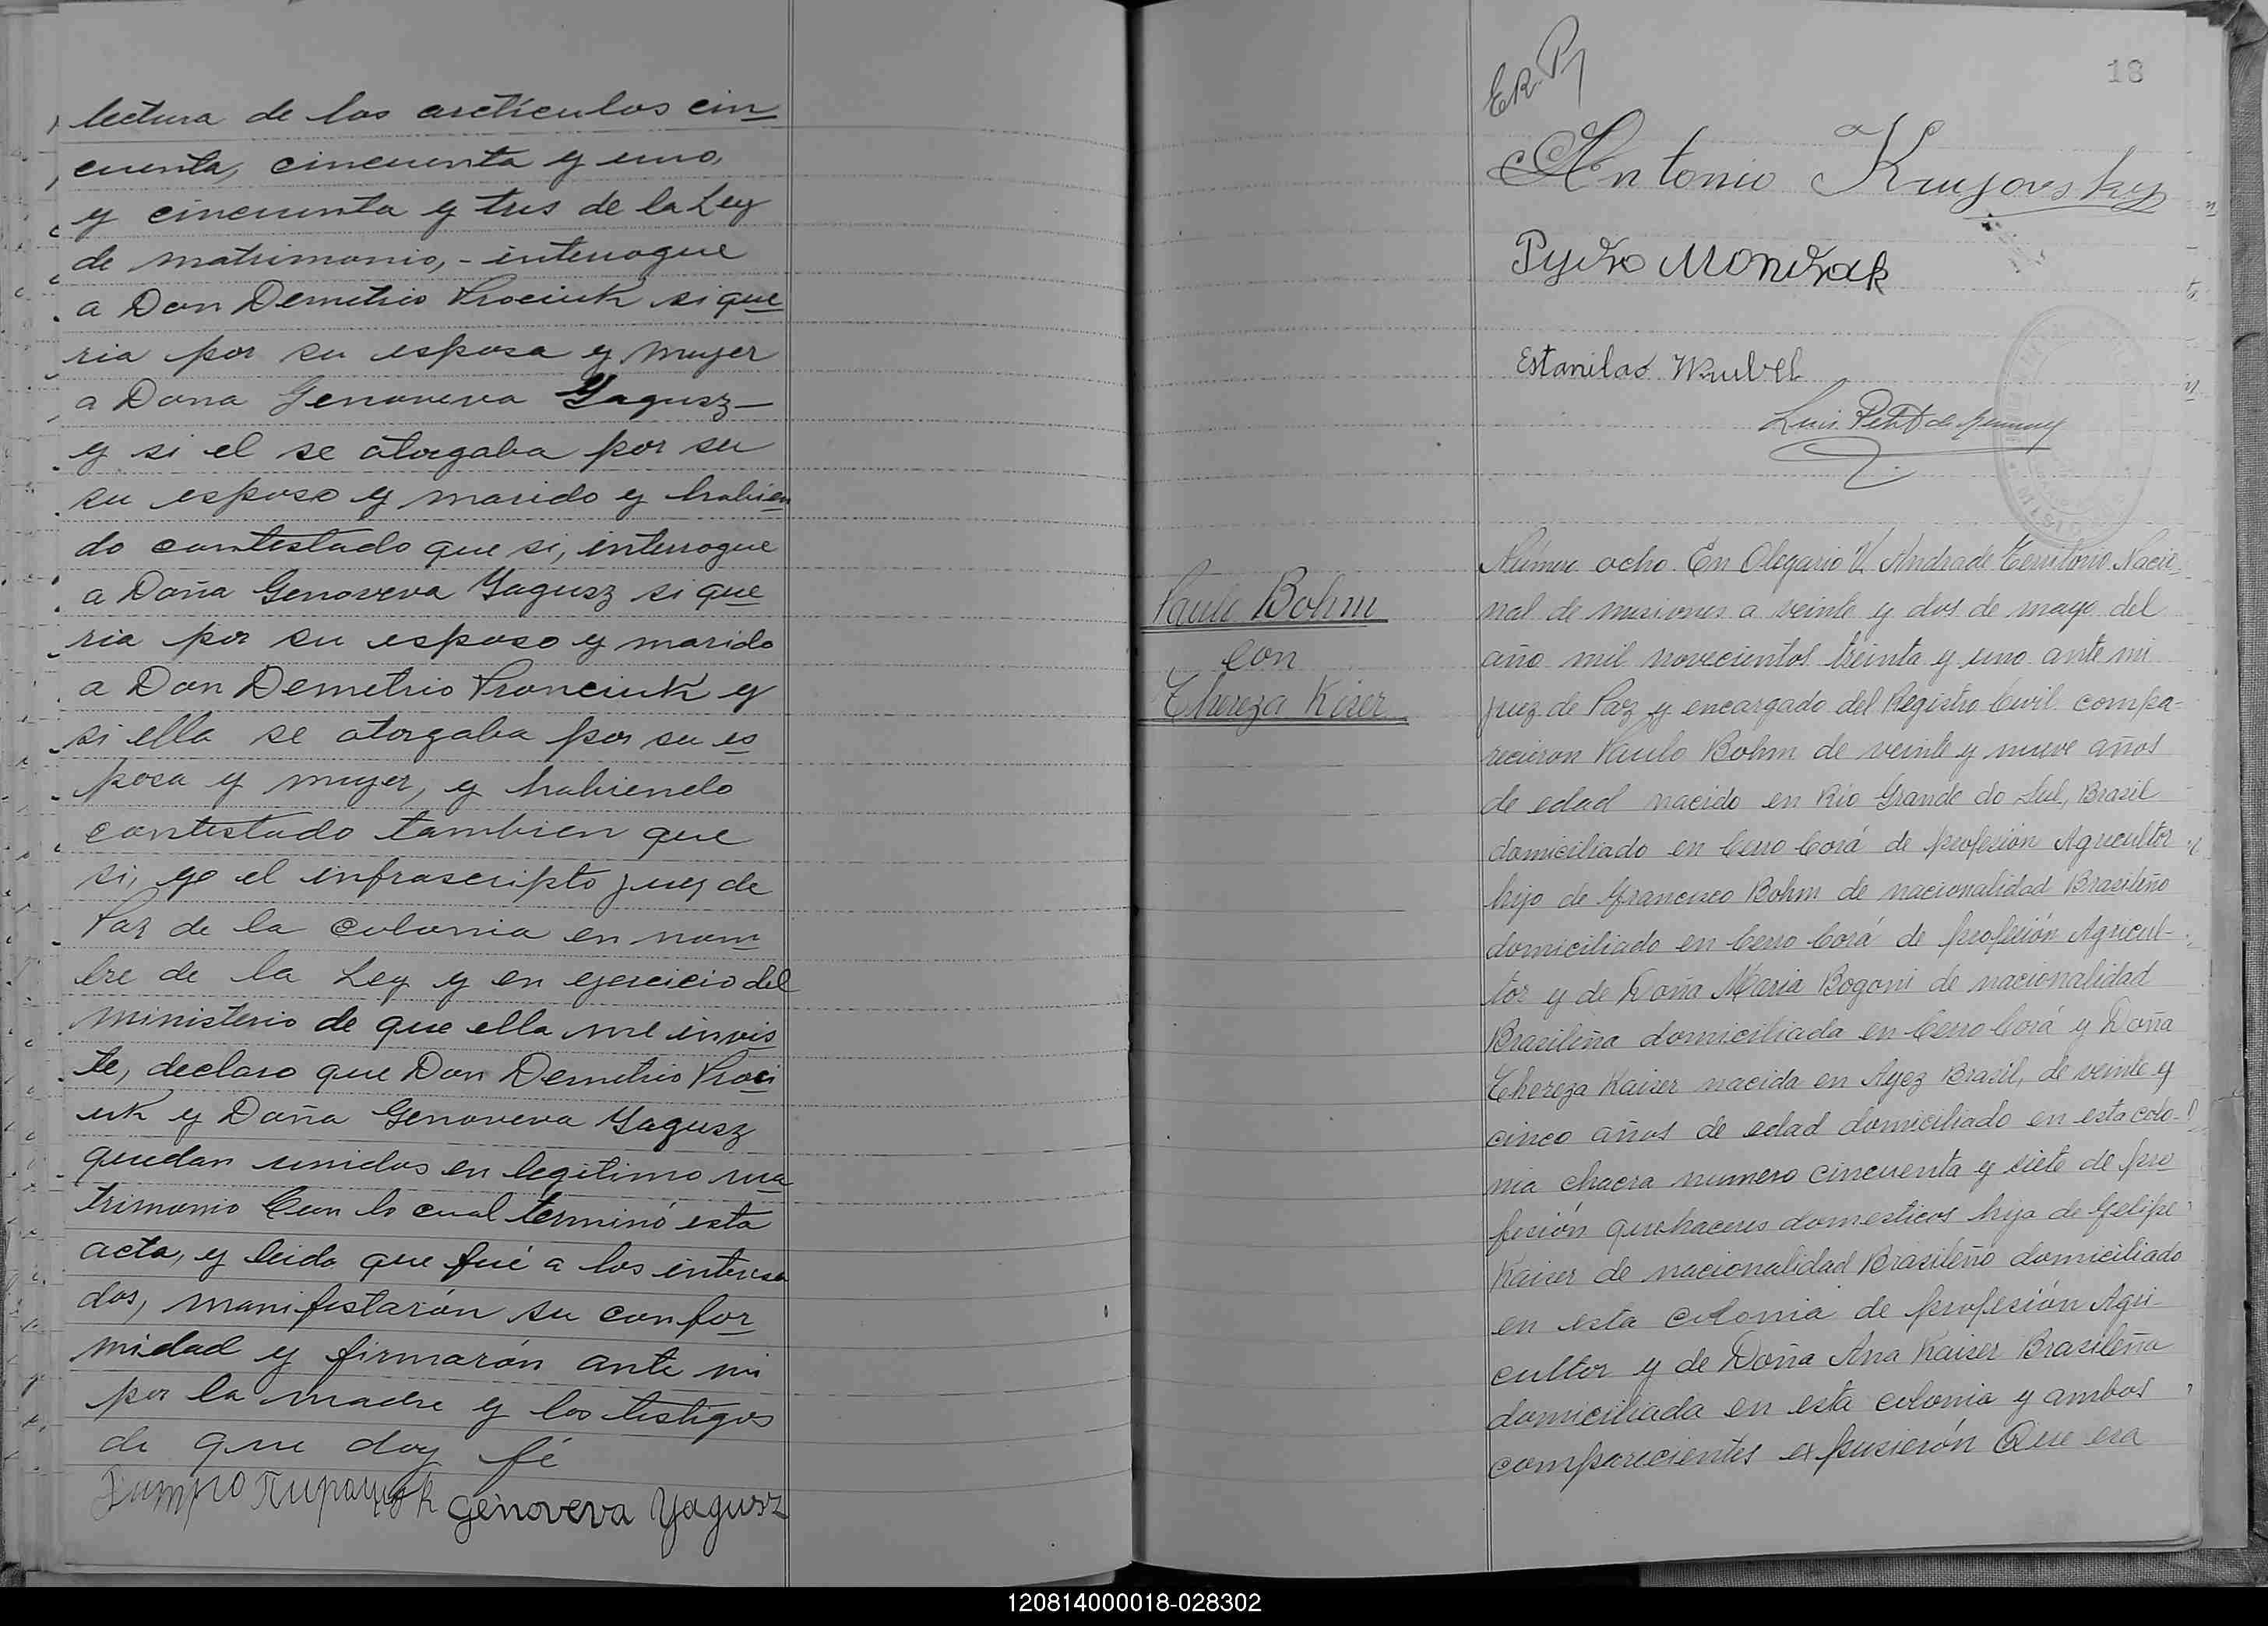 lectura de los arcticulos cin
cuenta, cincuenta y uno,
y cincuenta y tres de la Ley
de matrimonio, - interrogue
a Don Demetrio Prociuk si que
ria por su esposa y mujer
a Dona Genoveva Yagusz
y si el se otorgaba por su
su esposo y marido y habien
do contestado que si, interrogue
a Doña Genoveva Yagusz si que
ria por su esposo y marido
a Don Demetrio Pronciuk y
si ella se otorgaba por su es
posa y mujer, y habiendo
contestado tambien que
si, yo el infrascripto juez de
Paz de la Colonia en nom
bre de la Ley y en ejercicio del
ministerio de que ella me invis
te, declaro que Don Demetrio Proci
uk y Doña Genoveva Yagusz
quedan unidos en legitimo ma
trimonio Con lo cual terminó esta
acta, y leida que fué a los interesa
dos, manifestarón su confor
midad y firmarón ante mi
por la madre y los testigos
de que doy fé
Genoveva Yagusz
18
E.R.P
Antonio
Pydro Mondrak
Estanilao Wrubel
Luis Petit de
Paulo Bohm
con
Thereza Kiser
Número ocho. En Olegario V. Andrade Territorio Nacio-
nal de misiones a veinte y dos de mayo del
año mil novecientos treinta y uno ante mi
juez de Paz y encargado del Registro Civil compa-
recieron Paulo Bohm de veinte y nueve años
de edad nacido en Rio Grande do Sul, Brasil
domiciliado en Cerro Corá de profesión Agricultor
hijo de Francisco Bohm de nacionalidad Brasileño
domiciliado en Cerro Corá de profesión Agricul-
tor y de Doña Maria Bogoni de nacionalidad
Brasileña domiciliada en Cerro Corá y Doña
Thereza Kaiser nacida en Ayez Brasil, de veinte y
cinco años de edad domiciliado en esta colo-
nia chacra numero cincuenta y siete de pro
fesión quehaceres domesticos hija de Felipe
Kaiser de nacionalidad Brasileño domiciliado
en esta colonia de profesión Agri-
cultor y de Doña Ana Kaiser Brasileña
domiciliada en esta colonia y ambos
comparecientes expusierón Que era
120814000018-028302